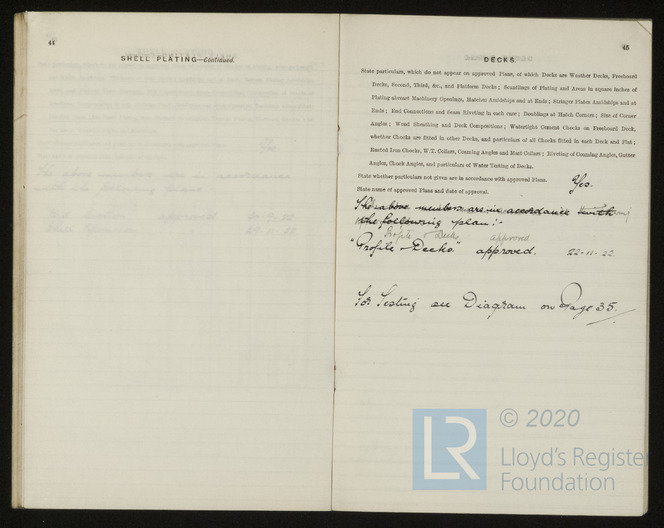 44
SHELL PLATING—Continued.
45
DECKS.
State particulars, which do not appear on approved Plans, of which Decks are Weather Decks, Freeboard
Decks, Second, Third, &c., and Platform Decks; Scantlings of Plating and Areas in square inches of
Plating abreast Machinery Openings, Hatches Amidships and at Ends; Stringer Plates Amidships and at
Ends; End Connections and Seam Riveting in each case; Doublings at Hatch Corners; Size of Corner
Angles; Wood Sheathing and Deck Compositions; Watertight Cement Chocks on Freeboard Deck,
whether Chocks are fitted in other Decks, and particulars of all Chocks fitted in each Deck and Flat;
Rusted Iron Chocks, W.T. Collars, Coaming Angles and Mast Collars; Riveting of Coaming Angles, Gutter
Angles, Chock Angles, and particulars of Water Testing of Decks.
State whether particulars not given are in accordance with approved Plans. Yes.
State name of approved Plans and date of approval.
The above members are in accordance with
the following plan:-
Profile & Decks approved
"Profile & Decks" approved. 22-11-22.
For Testing see Diagram on Page 35.
LR
© 2020
Lloyd's Register
Foundation